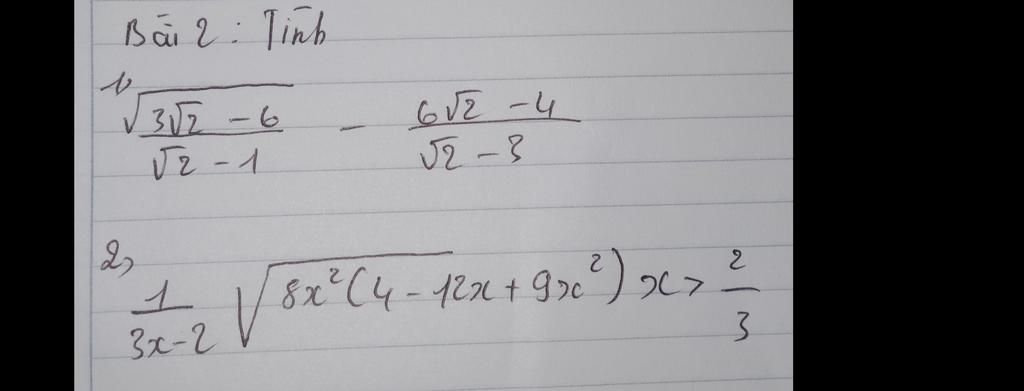 Bài 2 : Tính
1)
√(3√2 - 6) / (√2 - 1) - (6√2 - 4) / (√2 - 3)
2)
1 / (3x - 2) √(8x²(4 - 12x + 9x²)) x > 2 / 3